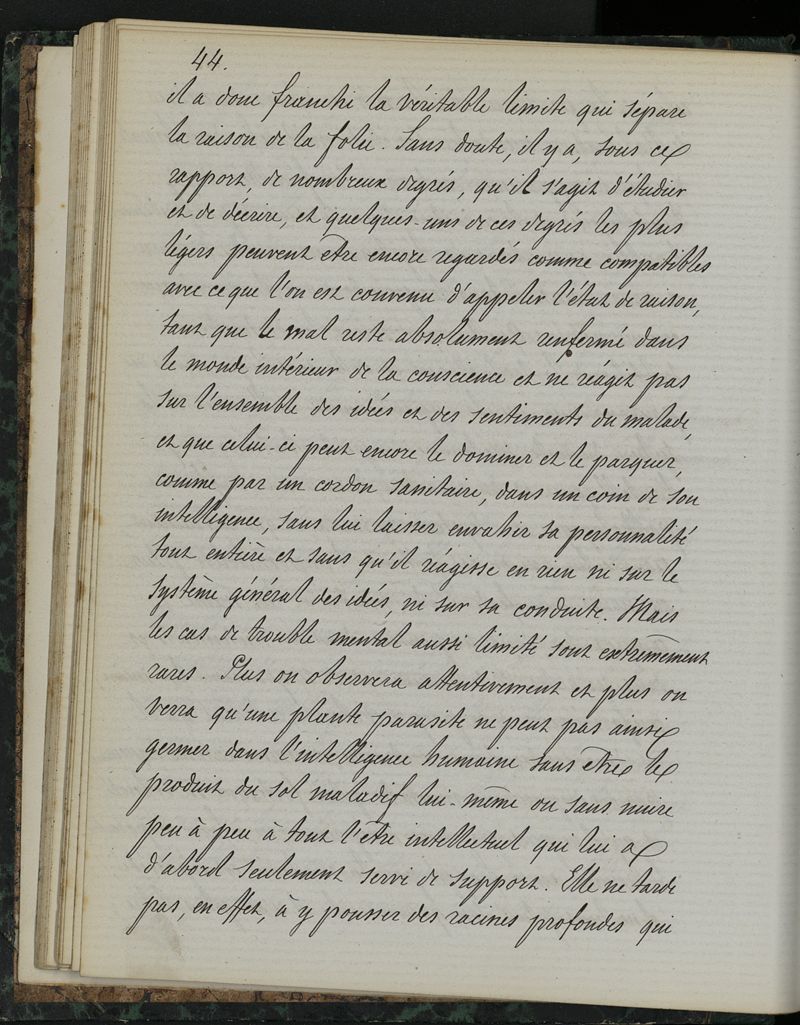 44.
il a donc franchi la véritable limite qui sépare
la raison de la folie. Sans doute, il y a, sous ce
rapport, de nombreux degrés, qu'il s'agit d'étudier
et de décrire, et quelques-uns de ces degrés les plus
légers peuvent être encore regardés comme compatibles
avec ce que l'on est convenu d'appeler l'état de raison,
tant que le mal reste absolument renfermé dans
le monde intérieur de la conscience et ne réagit pas
sur l'ensemble des idées et des sentiments du malade,
et que celui-ci peut encore le dominer et le parquer,
comme par un cordon sanitaire, dans un coin de son
intelligence, sans lui laisser envahir sa personnalité
tout entière et sans qu'il réagisse en rien ni sur le
système général des idées, ni sur sa conduite. Mais
les cas de trouble mental aussi limité sont extrêmement
rares. Plus on observera attentivement et plus on
verra qu'une plante parasite ne peut pas ainsi
germer dans l'intelligence humaine sans être le
produit du sol maladif lui-même ou sans nuire
peu à peu à tout l'être intellectuel qui lui a
d'abord seulement servi de support. Elle ne tarde
pas, en effet, à y pousser des racines profondes qui